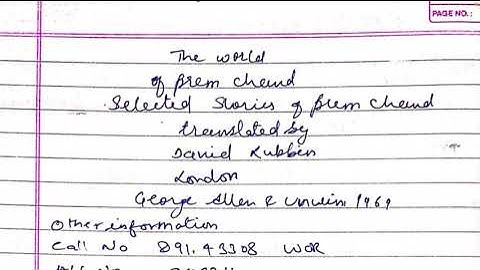 PAGE NO.:
The world
of prem chand
Selected Stories of prem chand
translated by
David Rubben
London
George Allen & Unwin 1969
Other information
Call No 891.43308 WOR